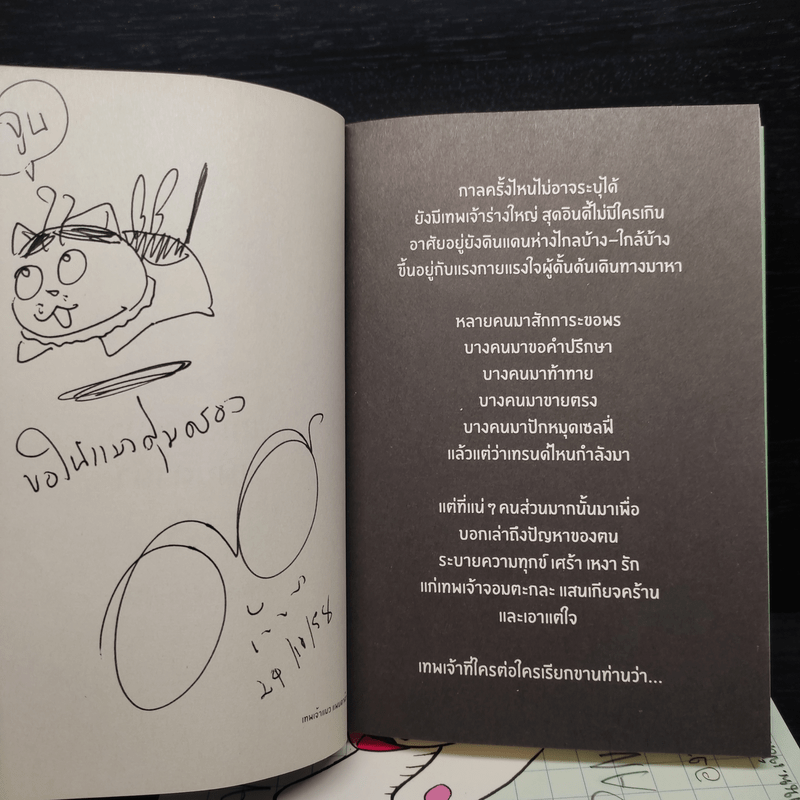 จูน
ขอให้แมวคุ้มครอง
เทพเจ้าแมว
กาลครั้งไหนไม่อาจระบุได้
ยังมีเทพเจ้าร่างใหญ่ สุดอินดี้ไม่มีใครเกิน
อาศัยอยู่ยังดินแดนห่างไกลบ้าง–ใกล้บ้าง
ขึ้นอยู่กับแรงกายแรงใจผู้ดั้นด้นเดินทางมาหา
หลายคนมาสักการะขอพร
บางคนมาขอคำปรึกษา
บางคนมาท้าทาย
บางคนมาขายตรง
บางคนมาปักหมุดเซลฟี่
แล้วแต่ว่าเทรนด์ไหนกำลังมา
แต่ที่แน่ ๆ คนส่วนมากนั้นมาเพื่อ
บอกเล่าถึงปัญหาของตน
ระบายความทุกข์ เศร้า เหงา รัก
แก่เทพเจ้าจอมตะกละ แสนเกียจคร้าน
และเอาแต่ใจ
เทพเจ้าที่ใครต่อใครเรียกขานท่านว่า...